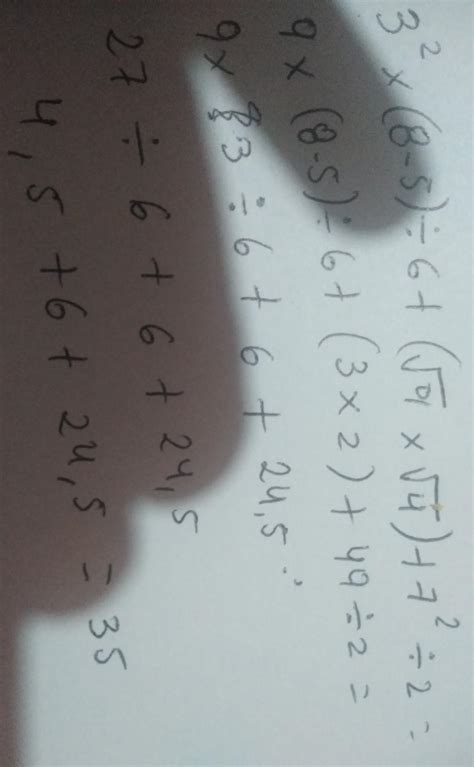 3² × (8-5) ÷ 6 + (√9 × √4) + 7² ÷ 2 =
9 × (8-5) ÷ 6 + (3 × 2) + 49 ÷ 2 =
9 × 3 ÷ 6 + 6 + 24,5
27 ÷ 6 + 6 + 24,5
4,5 + 6 + 24,5 = 35